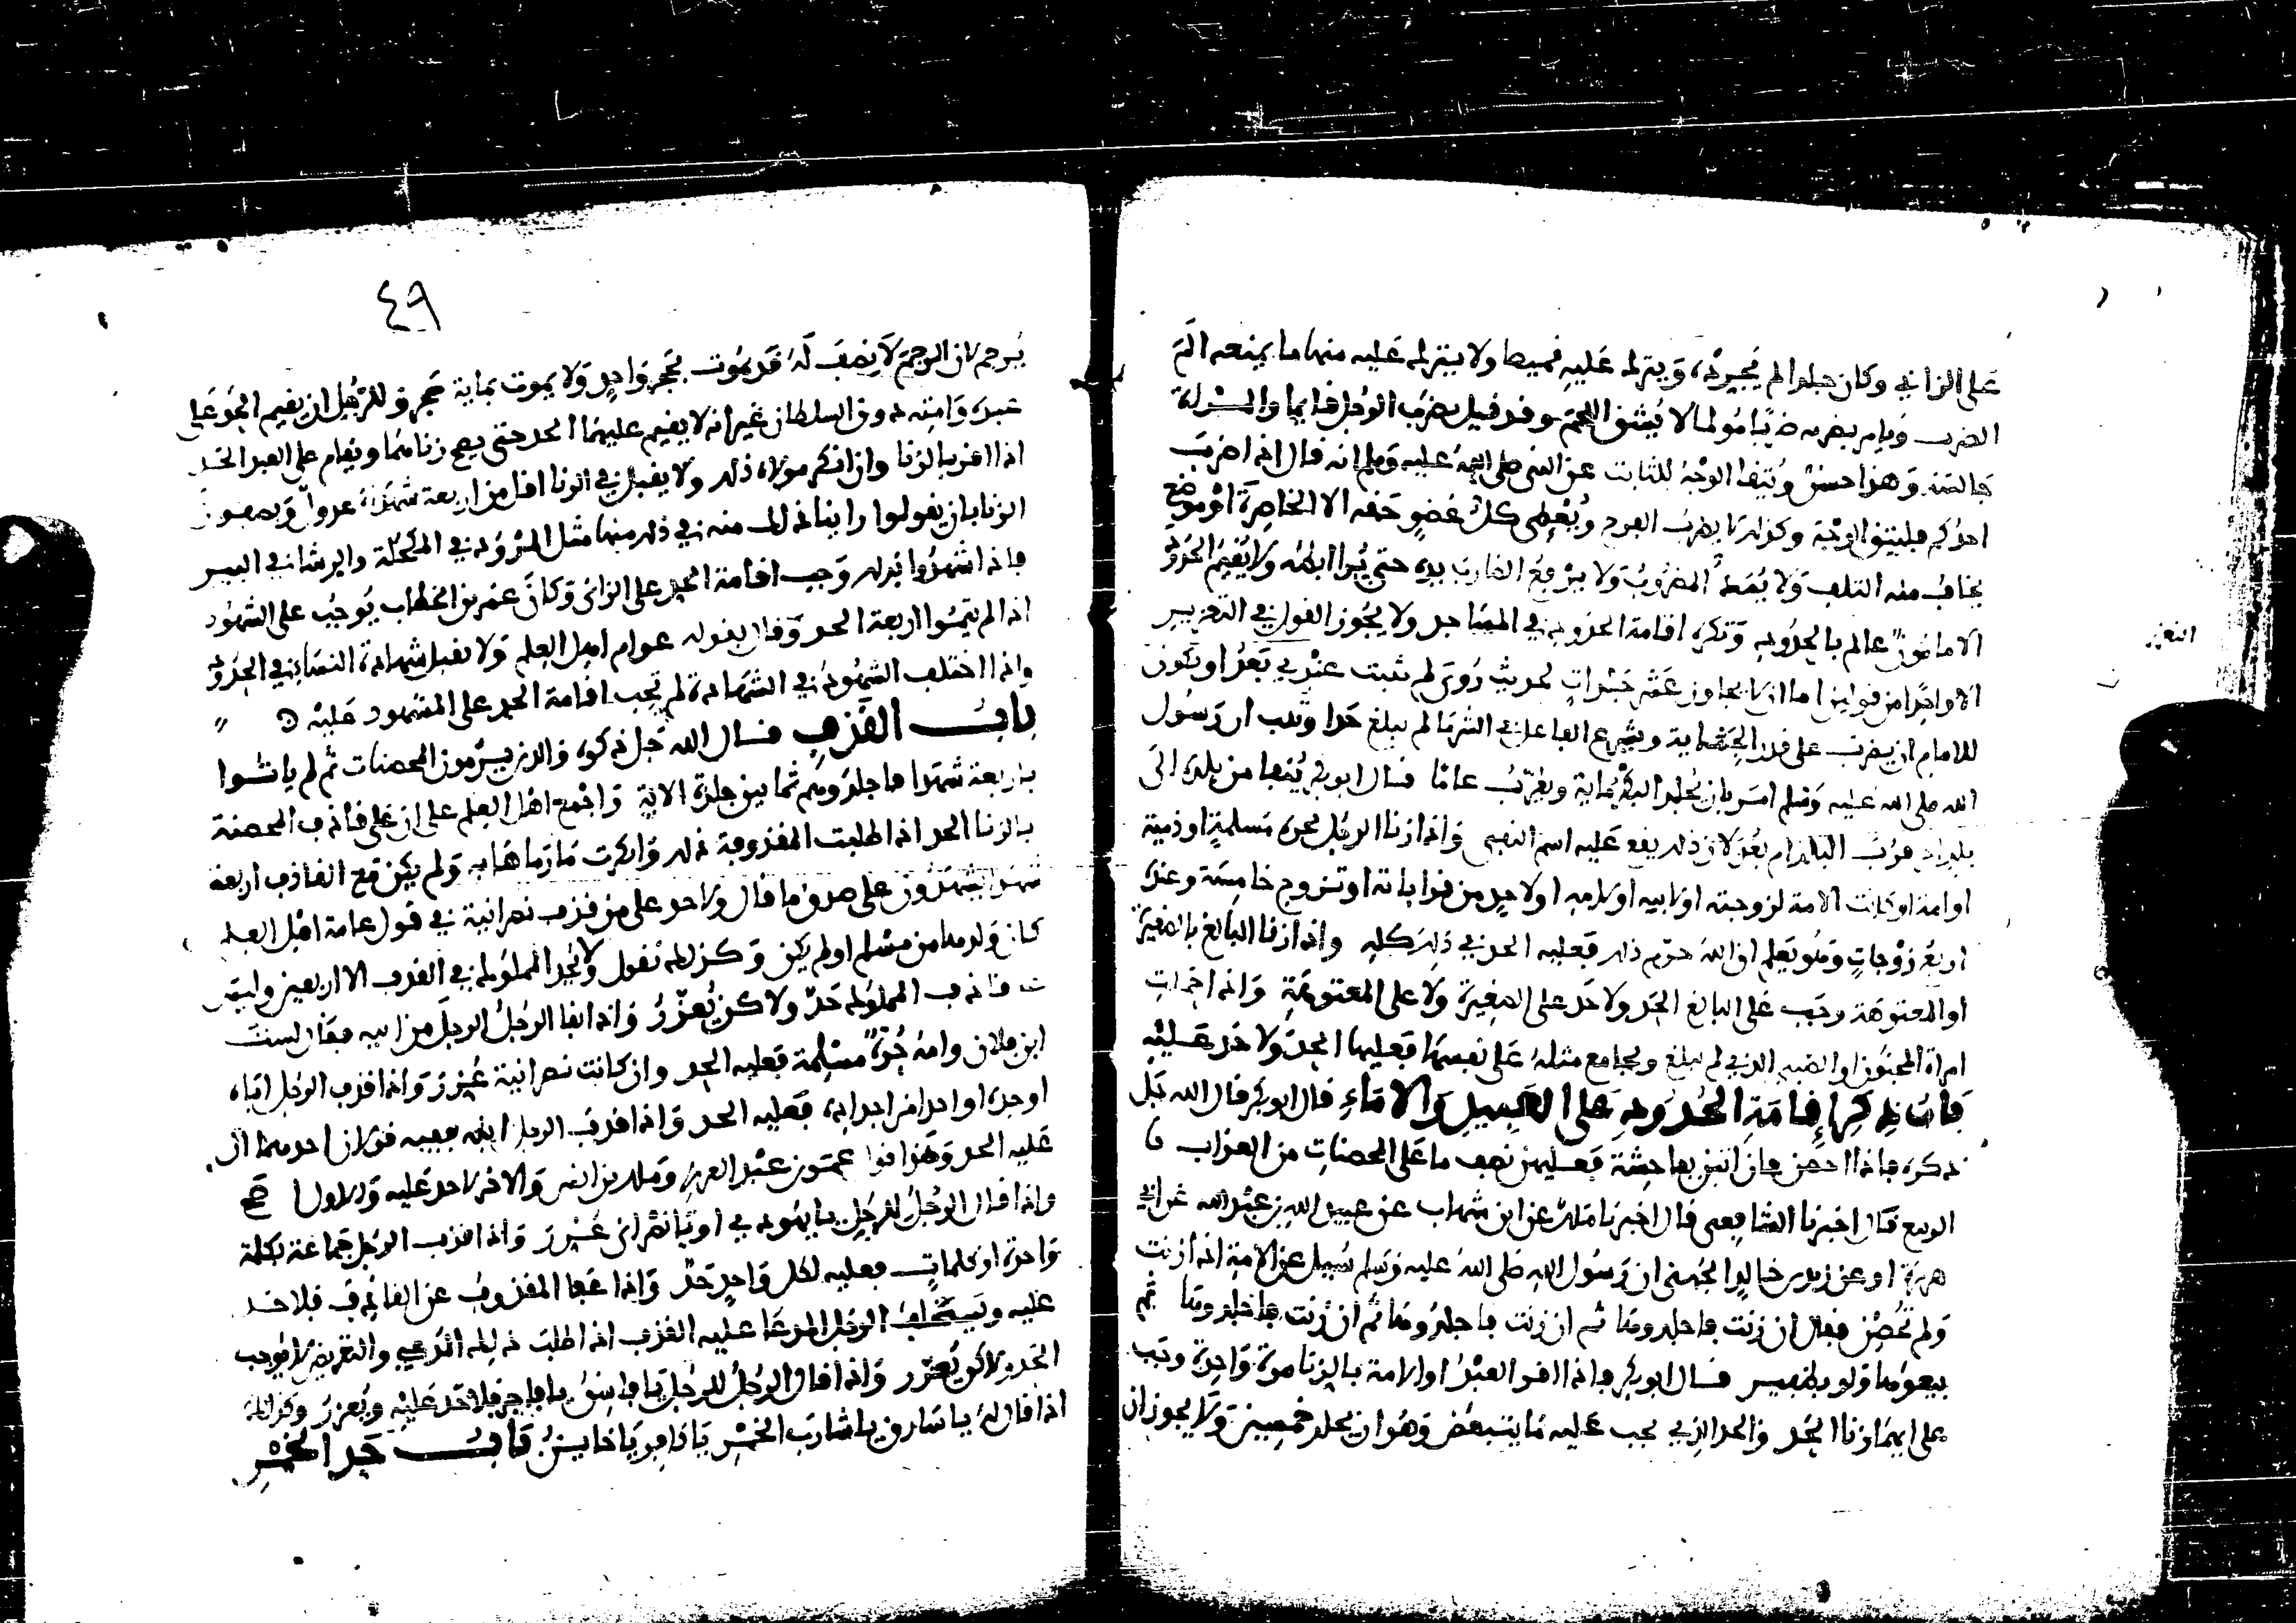 على الزاني وكان جلدا لم يجرد، ويترك عليه قميصا ولا يترك عليه منها ما يمنعه الم
الضرب ويامر بضربه ضربا مولما لا يشق اللحم وقد قيل يضرب الرجل قايما والمراة
جالسة وهذا حسن ويتقا الوجه للثابت عن النبي صلى الله عليه وسلم انه قال اذا ضرب
احدكم فليتق الوجه وكذلك يضرب الفرج ويعطى كل عضو حقه الا الخاصرة او موضع
يخاف منه التلف ولا يمد المضروب ولا يرفع الضارب يده حتى يرا ابطه ولا يقيم الحدود
الا مامون عالم بالحدود وتكره اقامة الحدود في المساجد ولا يجوز القول في التعزير
التعزير
الا واحدا من قولين اما ان لا يجاوز عشر جلدات لحديث روي لم يثبت عندي بعد او يكون
للامام ان يضرب على قدر الجناية وشرع الفاعل في الشر ما لم يبلغ حدا وثبت ان رسول
الله صلى الله عليه وسلم امر بان يجلد البكر بماية ويغرب عاما قال ابو بكر ينفا من بلده الى
بلد قرب البلد ام بعد لان ذلك يقع عليه اسم النفي واذا زنا الرجل بحرة مسلمة او ذمية
او امة او كانت الامة لزوجته او لابيه او لامه او لاحد من قراباته او تزوج خامسة وعنده
اربع زوجات وهو يعلم ان الله حرم ذلك فعليه الحد في ذلك كله واذا زنا البالغ بالصغيرة
او المعتوهة وجب على البالغ الحد ولا حد على الصغيرة ولا على المعتوهة واذا
امراة المجنون او الصبي الذي لم يبلغ ويجامع مثله على نفسها فعليها الحد ولا حد عليه
باب ذكر إقامة الحدود على العبيد والاماء قال ابو بكر قال الله جل
ذكره فاذا احصن فان اتين بفاحشة فعليهن نصف ما على المحصنات من العذاب
الربيع قال اخبرنا الشافعي قال اخبرنا ملك عن ابن شهاب عن عبيد الله بن عبد الله عن ابي
هريرة او عن زيد بن خالد الجهني ان رسول الله صلى الله عليه وسلم سيل عن الامة اذا زنت
ولم تحصن فقال ان زنت فاجلدوها ثم ان زنت فاجلدوها ثم ان زنت فاجلدوها ثم
بيعوها ولو بظفير قال ابو بكر فاذا اقر العبد او الامة بالزنا مرة واحدة وجب
على ايهما زنا الحد والحد الذي يجب عليه ما يتبعض وهو ان يجلد خمسين ولا يجوز ان
٤٩
يرجم لان الرجم لا نصف له قد يموت بحجر واحد ولا يموت بماية حجر وللرجل ان يقيم الحد على
عبده وامته دون السلطان غير انه لا يقيم عليهما الحد حتى يصح زناهما ويقام على العبد الحد
اذا اقر بالزنا وان انكر مولاه ذلك ولا يقبل في الزنا اقل من اربعة شهداء عدول ويصفون
الزنا بان يقولوا راينا ذلك منه في ذلك منها مثل المرود في المكحلة والرشا في البير
فاذا شهدوا بذلك وجب اقامة الحد على الزاني وكان عمر بن الخطاب يوجب على الشهود
اذا لم يتموا اربعة الحد وقال بقوله عوام اهل العلم ولا تقبل شهادة النسا في الحدود
واذا اختلف الشهود في الشهادة لم يجب اقامة الحد على المشهود عليه
باب القذف قال الله جل ذكره والذين يرمون المحصنات ثم لم ياتوا
باربعة شهدا فاجلدوهم ثمانين جلدة الاية واجمع اهل العلم على ان على قاذف المحصنة
بالزنا الحد اذا طلبت المقذوفة ذلك وانكرت ما رماها به ولم يكن مع القاذف اربعة
شهدا يشهدون على صدق ما قال ولا حد على من قذف نصرانية في قول عامة اهل العلم
كان ولدها من مسلم او لم يكن وكذلك نقول ولا يجلد المملوك في القذف الا اربعين وليس
قاذف المملوك حد ولاكن يعزر واذا نفا الرجل الرجل من ابيه فقال لست
ابن فلان وامه حرة مسلمة فعليه الحد وان كانت نصرانية عزر واذا قذف الرجل اباه
او جده او احدا من اجداده، فعليه الحد واذا قذف الرجل ابنه ففيه قولان احدهما ان
عليه الحد وهذا قول عمر بن عبد العزيز وملك بن انس والاخر لا حد عليه والاول اصح
واذا قال الرجل للرجل يا يهودي او يا نصراني عزر واذا قذف الرجل جماعة بكلمة
واحدة او كلمات فعليه لكل واحد حد واذا عفا المقذوف عن القاذف فلا حد
عليه ويستحلف الرجل المدعا عليه القذف اذا طلب ذلك المدعي والتعريض لا يوجب
الحد ولاكن يعزر واذا قال الرجل للرجل يا فاسق يا فاجر فلا حد عليه ويعزر وكذلك
اذا قال له يا سارق يا شارب الخمر يا كافر يا خاين باب حد الخمر